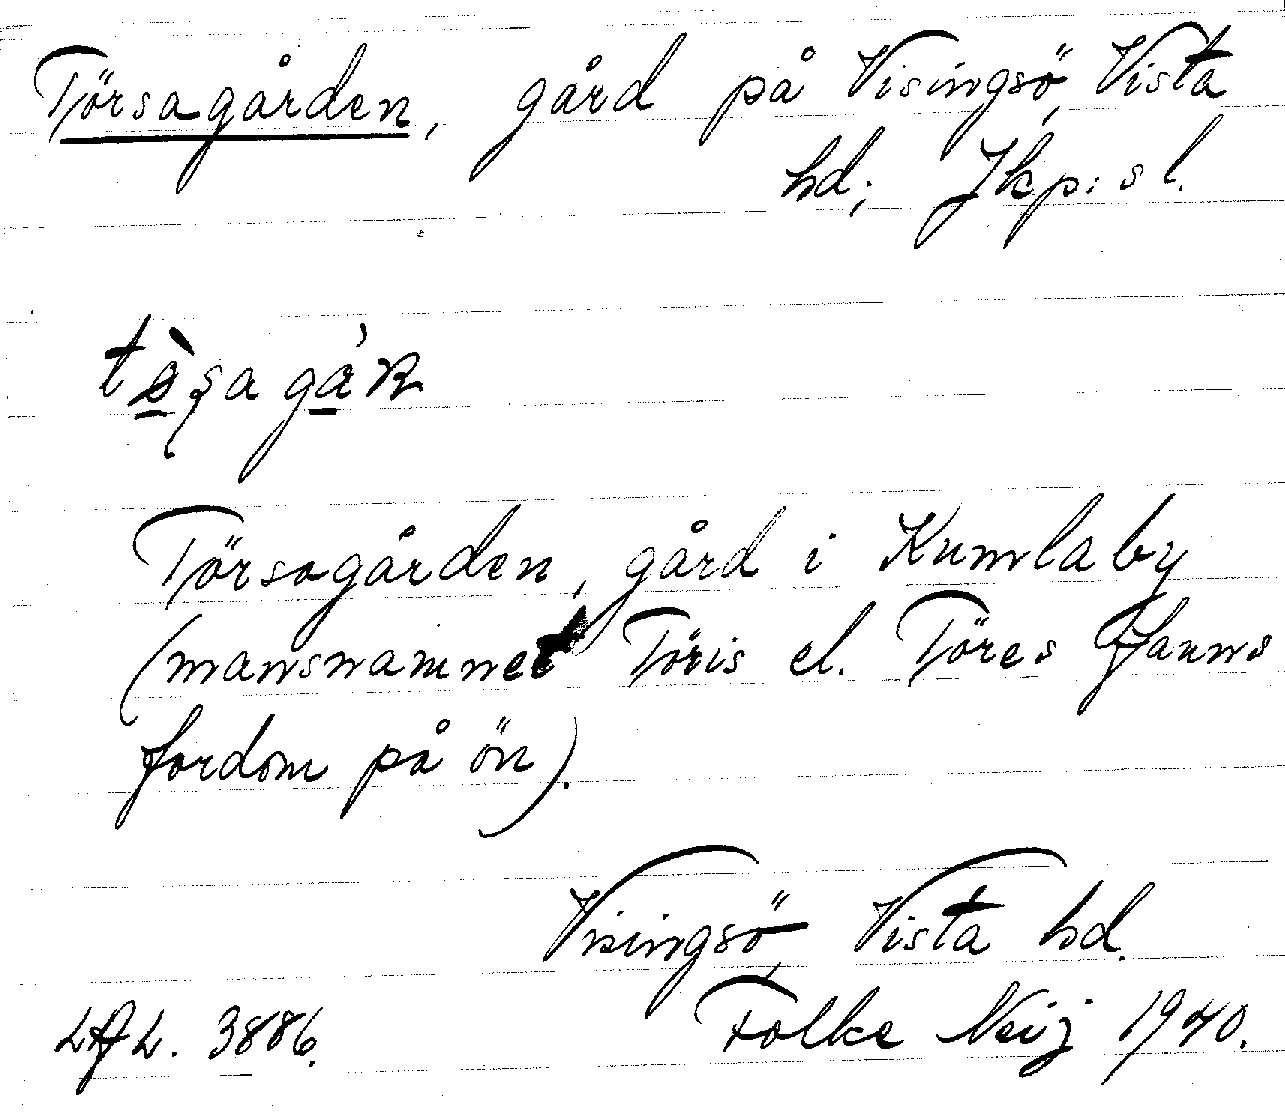 Törsagården, gård på Visingsö, Vista
hd; Jkp:s l.
Törsagården, gård i Kumlaby
(mansnamnet Töris el. Töres fanns
fordom på ön).
Visingsö, Vista hd.
3886. Folke Neij 1940.